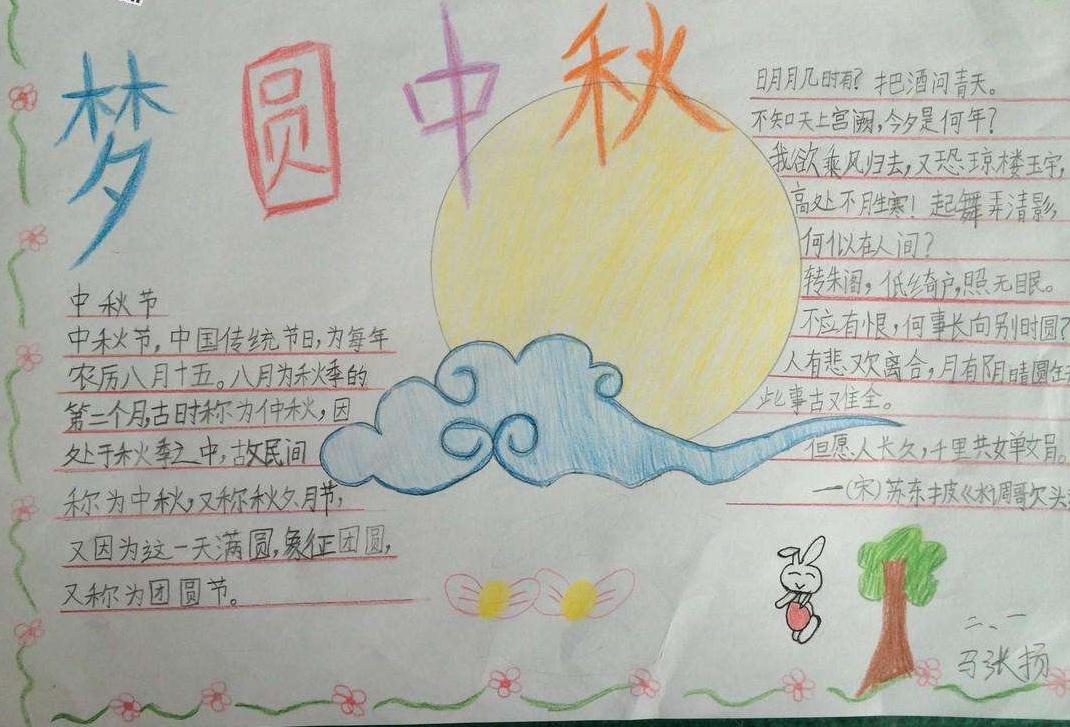 梦圆中秋
中秋节
中秋节,中国传统节日,为每年
农历八月十五。八月为秋季的
第二个月,古时称为仲秋,因
处于秋季之中,故民间
称为中秋,又称秋夕月节,
又因为这一天满圆,象征团圆,
又称为团圆节。
明月几时有?把酒问青天。
不知天上宫阙,今夕是何年?
我欲乘风归去,又恐琼楼玉宇,
高处不胜寒!起舞弄清影,
何似在人间?
转朱阁,低绮户,照无眠。
不应有恨,何事长向别时圆?
人有悲欢离合,月有阴晴圆
此事古难全。
但愿人长久,千里共婵娟。
—(宋)苏东坡《水调歌头
二、一
马张扬